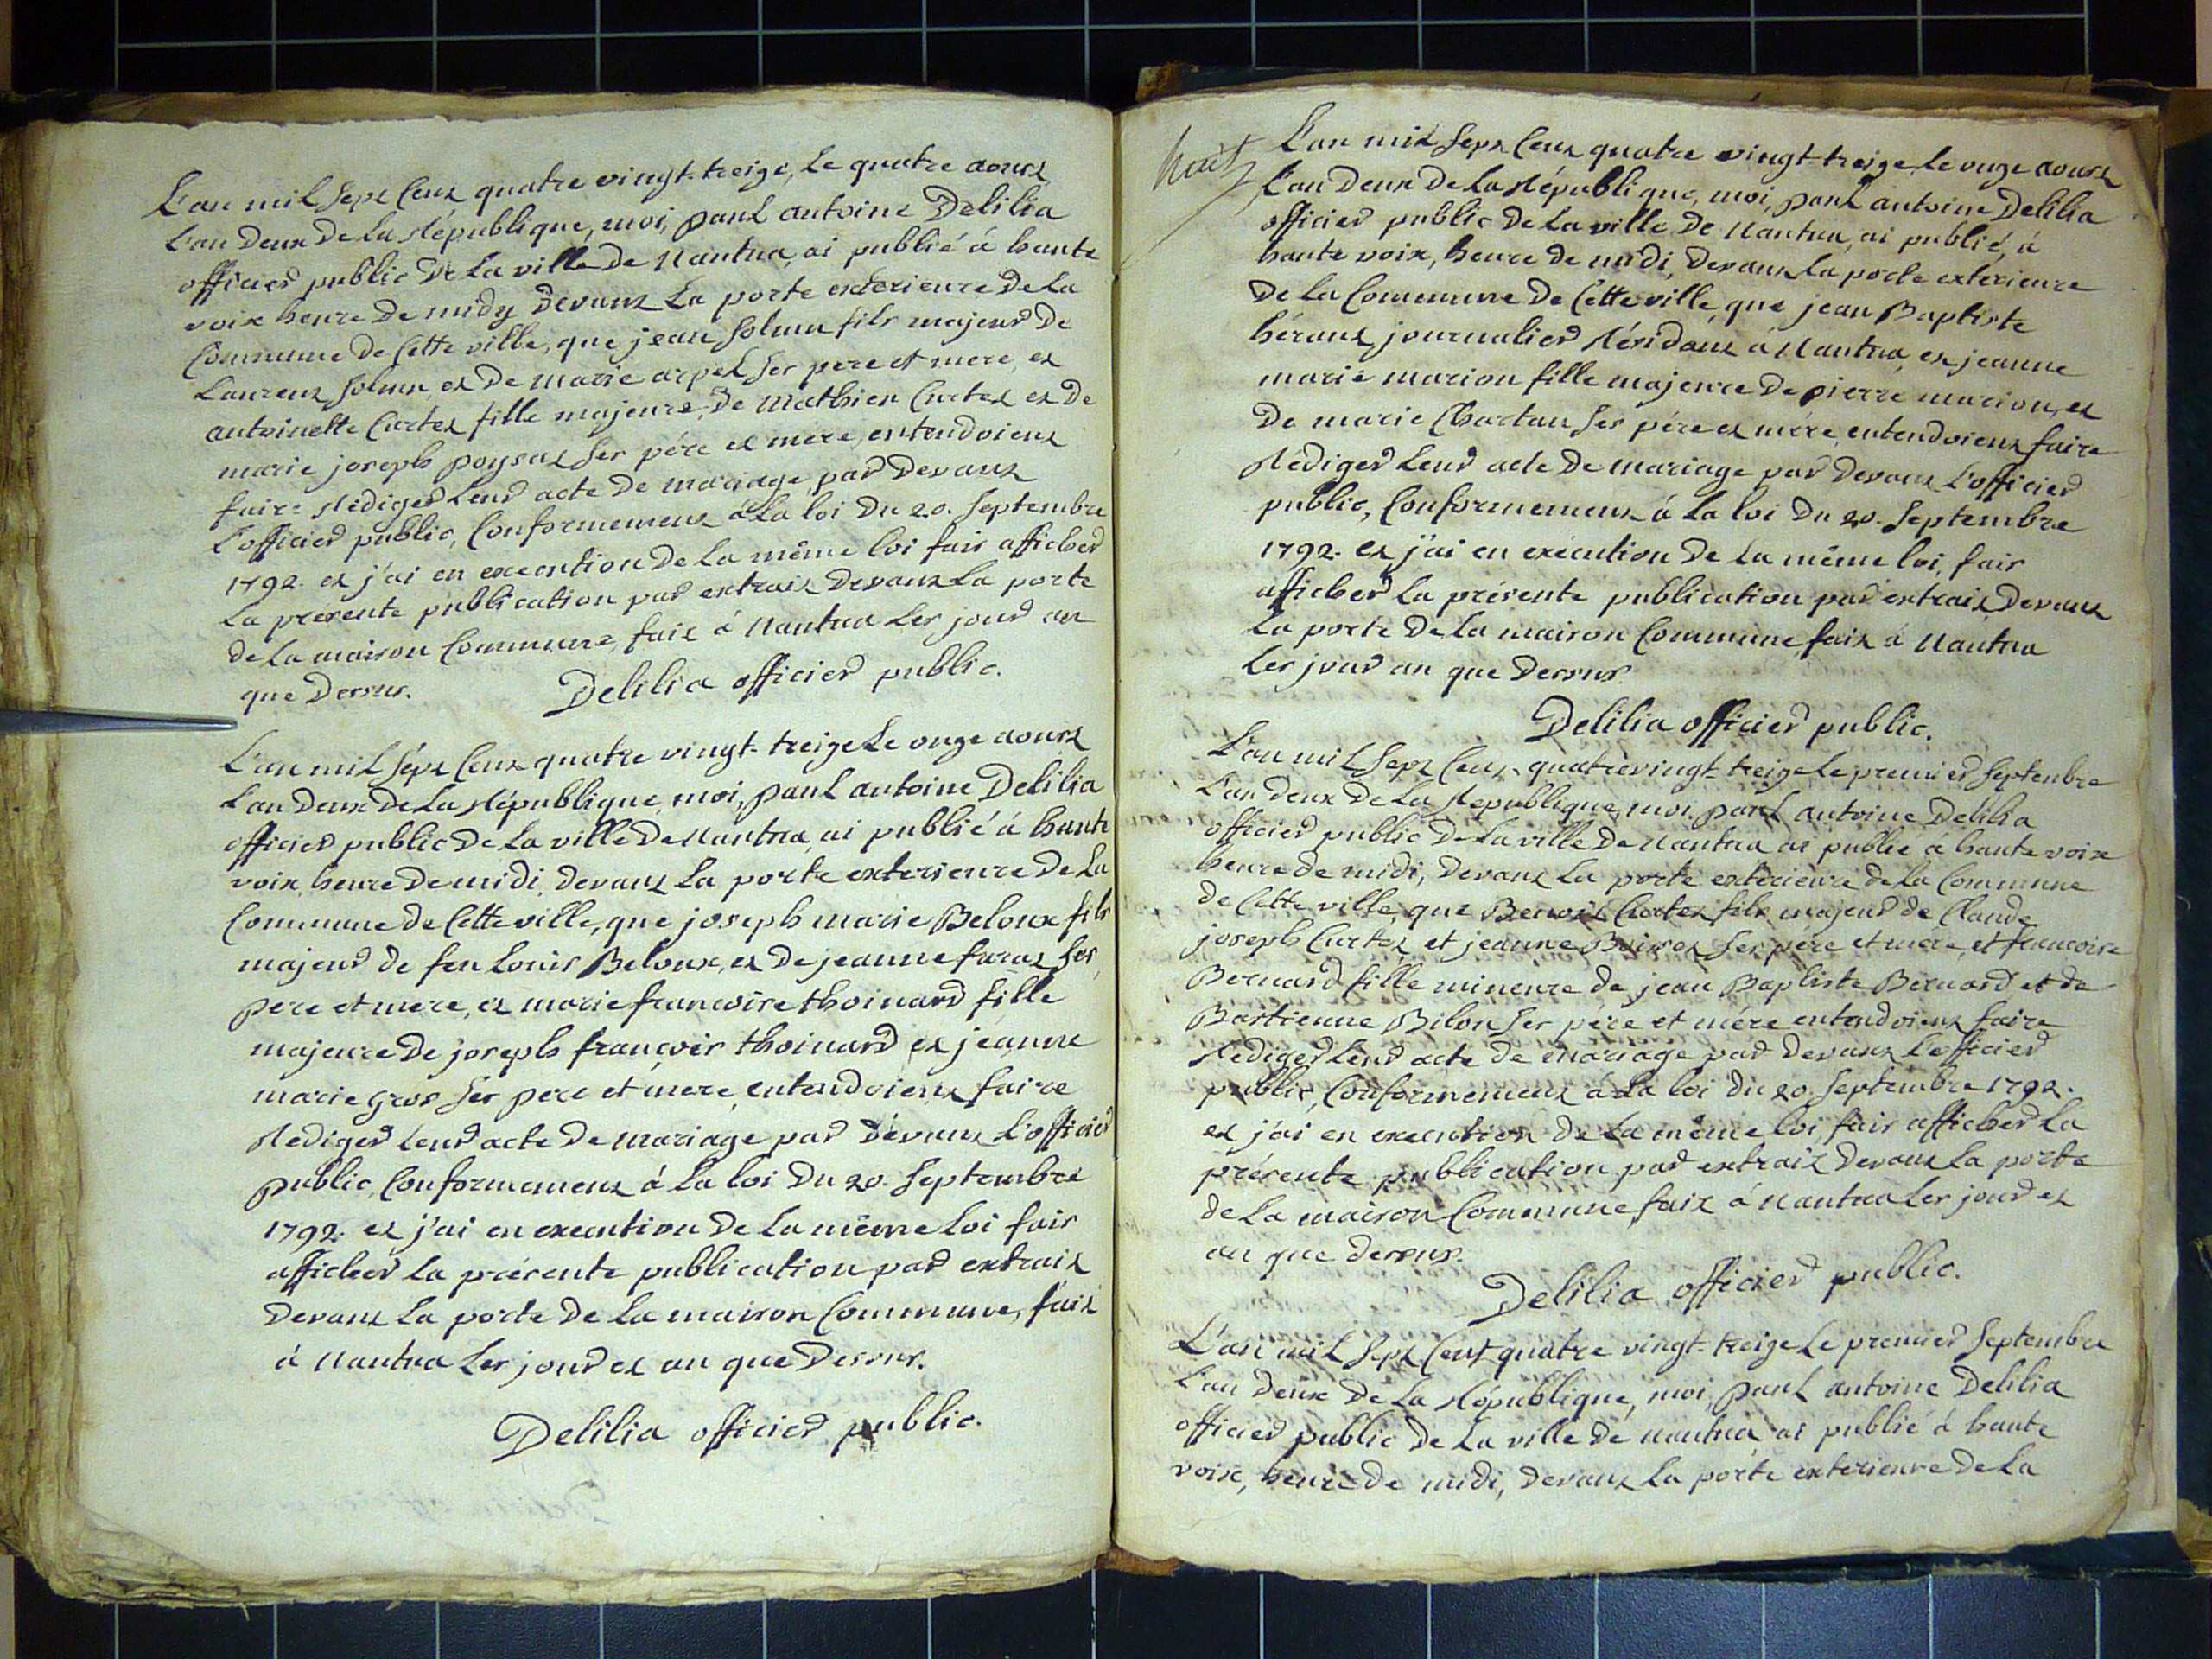 L'an mil sept cent quatre vingt-treize, le quatre aoust
l'an deux de la république, moi, paul antoine Delilia
officier public de la ville de Nantua, ai publié à haute
voix heure de midy devant la porte exterieure de la
Commune de cette ville, que jean solmu fils majeur de
Laurent solmu, et de marie arpel ses pere et mere, et
antoinette Curtet fille majeure, de mathieu Curtet et de
marie joseph poysat ses pére et mere, entendoient
faire rédiger leur acte de mariage par devant
l'officier public, conformement à la loi du 20. septembre
1792. et j'ai en execution de la même loi fait afficher
la presente publication par extrait devant la porte
de la maison Commune, fait à Nantua les jour an
que dessus.
Delilia officier public.
L'an mil sept cent quatre vingt-treize le onze aoust
l'an deux de la république, moi, paul antoine Delilia
officier public de la ville de Nantua, ai publié à haute
voix, heure de midi, devant la porte exterieure de la
Commune de cette ville, que joseph marie Beloux fils
majeur de feu Louis Beloux, et de jeanne furat ses
pere et mere, et marie francoise thoinard fille
majeure de joseph françois thoinard et jeanne
marie gros ses pere et mere, entendoient faire
rédiger leur acte de mariage par dévant l'officier
public, conformement à la loi du 20. septembre
1792. et j'ai en execution de la même loi fait
afficher la présente publication par extrait
devant la porte de la maison Commune, fait
à Nantua les jour et an que dessus.
Delilia officier public.
huit
L'an mil sept cent quatre vingt-treize, le onze aoust
l'an deux de la république, moi, paul antoine Delilia
officier public de la ville de Nantua, ai publié, à
haute voix, heure de midi, devant la porte exterieure
de la Commune de cette ville, que jean Baptiste
héraut journalier résidant à Nantua, et jeanne
marie marion fille majeure de pierre marion, et
de marie Chartan ses pére et mére, entendoient faire
rédiger leur acte de mariage par devant l'officier
public, conformement à la loi du 20. septembre
1792. et j'ai en exécution de la même loi, fait
afficher la présente publication par extrait, devant
la porte de la maison Commune fait à Nantua
les jour an que dessus
Delilia officier public.
L'an mil sept cent quatrevingt-treize le premier septembre
l'an deux de la république, moi, paul antoine Delilia
officier public de la ville de Nantua ai publié à haute voix
heure de midi, devant la porte extérieure de la Commune
de cette ville, que Benoit Curtet fils majeur de Claude
joseph Curtet et jeanne ses pére et mere, et francoise
Bernard fille mineure de jean Baptiste Bernard et de
Bastienne Bilon ses pére et mére entendoient faire
rédiger leur acte de mariage par devant l'officier
public, conformement à la loi du 20. septembre 1792.
et j'ai en execution de la même loi, fait afficher la
présente publication par extrait devant la porte
de la maison Commune, fait à Nantua les jour et
an que dessus.
Delilia officier public.
L'an mil sept cent quatre vingt-treize le premier septembre
l'an deux de la république, moi, paul antoine Delilia
officier public de la ville de nantua ai publié à haute
voix, heure de midi, devant la porte exterieure de la